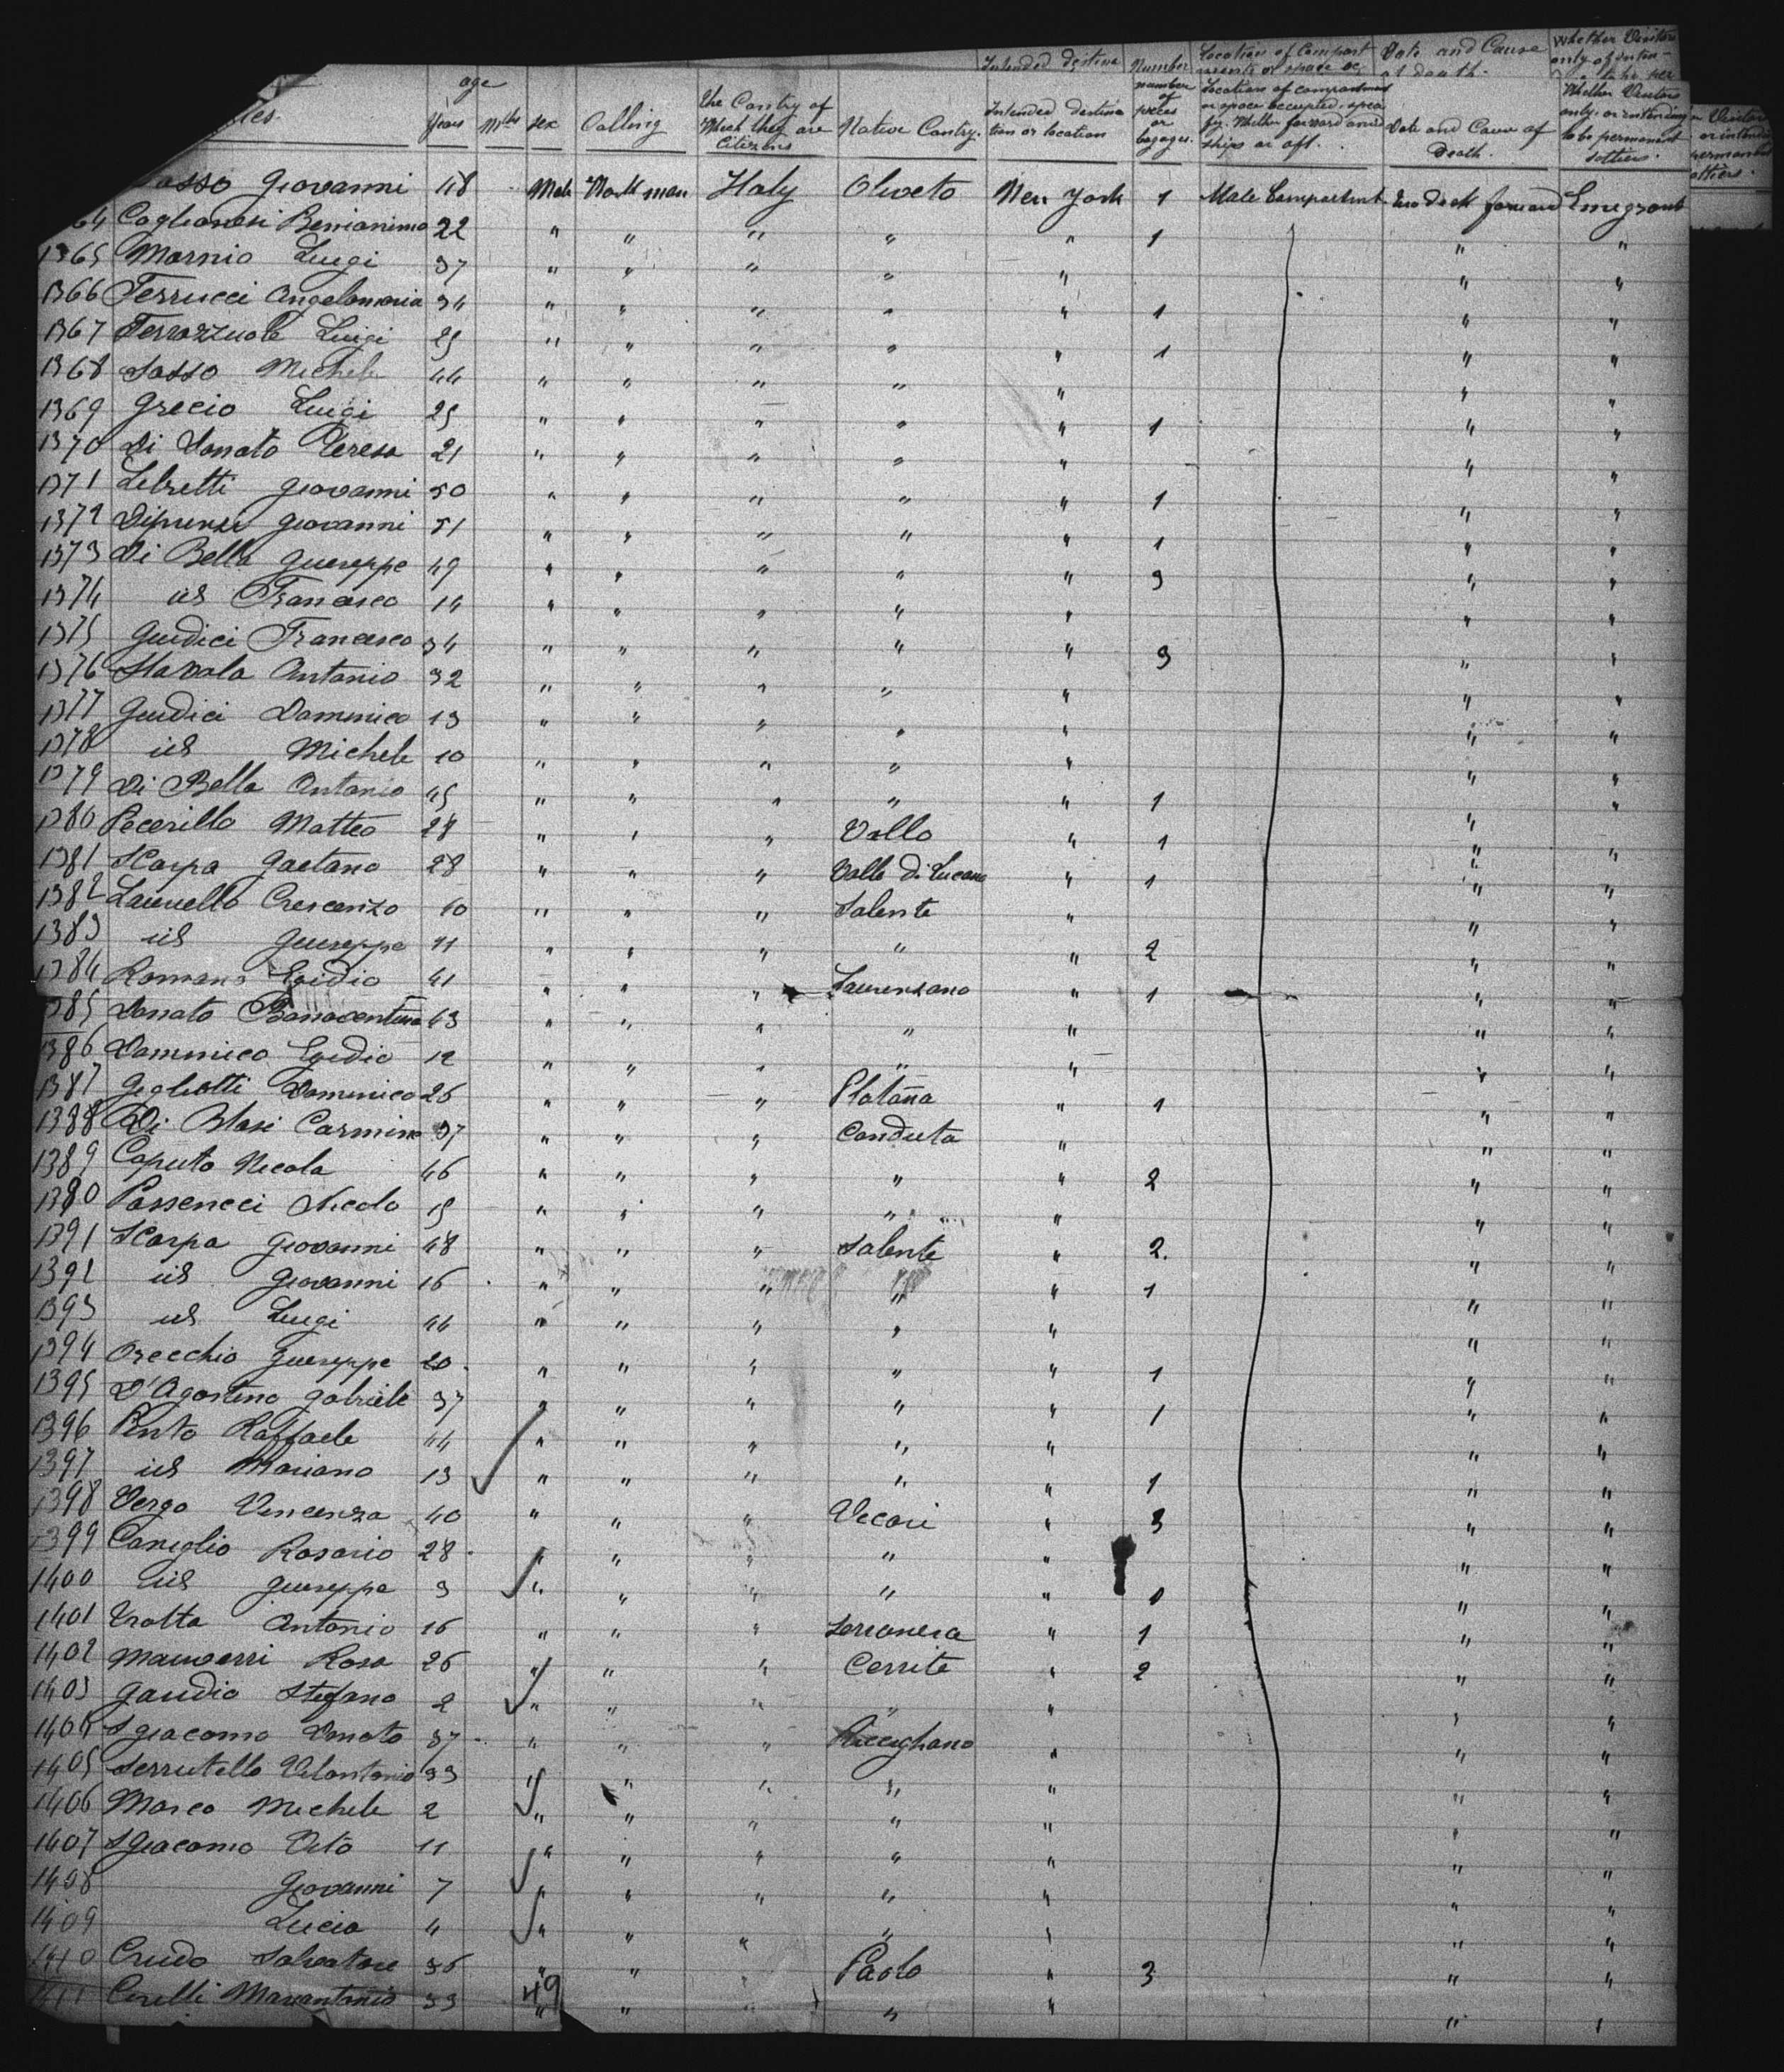 age
Years Mths sex Calling The Contry of Which they are Citizens Native Contry. Intended destination or location number of pieces or bagages. Location of compartment or space occupied, spea fy. Whether forward amid ships or aft. Date and Cause of Death. Whether Visitors only, or intending to be permanent settlers.
Sasso Giovanni 48 Male Workman Italy Oliveto New York 1 Male Compartment forward Emigrant
64 Coglianesi Beniamino 22 " " " " " 1 " "
1365 Marnio Luigi 37 " " " " " " "
1366 Ferrucci Angelomaria 34 " " " " " 1 " "
1367 Terrazzuole Luigi 25 " " " " " 1 " "
1368 Sasso Michele 44 " " " " " " "
1369 Grecio Luigi 25 " " " " " 1 " "
1370 Di Donato Teresa 21 " " " " " " "
1371 Libretti Giovanni 50 " " " " " 1 " "
1372 Giovanni 51 " " " " " 1 " "
1373 Di Bella Giuseppe 49 " " " " " 3 " "
1374 id Francesco 14 " " " " " " "
1375 Giudici Francesco 34 " " " " " 3 " "
1376 Stavola Antonio 32 " " " " " " "
1377 Giudici Domenico 13 " " " " " " "
1378 id Michele 10 " " " " " " "
1379 Di Bella Antonio 45 " " " " " 1 " "
1380 Pecorillo Matteo 28 " " " Vallo " 1 " "
1381 Scarpa Gaetano 28 " " " Vallo di Lucano " 1 " "
1382 Crescenzo 40 " " " Salente " " "
1383 id Giuseppe 11 " " " " " 2 " "
1384 Romano Egidio 41 " " " Laurenzano " 1 " "
1385 Donato Bonaventura 43 " " " " " " "
1386 Domenico Egidio 12 " " " " " " "
1387 Gigliotti Domenico 26 " " " Platania " 1 " "
1388 Di Blasi Carmine 37 " " " Conduta " " "
1389 Caputo Nicola 46 " " " " " 2 " "
1380 Passenci Nicola 15 " " " " " " "
1391 Scarpa Giovanni 48 " " " Salente " 2. " "
1392 id Giovanni 16 " " " " " 1 " "
1393 id Luigi 44 " " " " " " "
1394 Orecchio Giuseppe 20 " " " " " 1 " "
1395 D'Agostino Gabriele 37 " " " " " 1 " "
1396 Pinto Raffaele 44 " " " " " " "
1397 id Mariano 13 " " " " " 1 " "
1398 Vergo Vincenza 40 " " " Vicari " 3 " "
1399 Caniglio Rosario 28 " " " " " " "
1400 id Giuseppe 3 " " " " " 1 " "
1401 Trotta Antonio 16 " " " " 1 " "
1402 Mauverri Rosa 26 " " " Cerrite " 2 " "
1403 Gaudio Stefano 2 " " " " " " "
1404 Sgiacomo Donato 37 " " " Ricigliano " " "
1405 Serrutello Vitantonio 33 " " " " " " "
1406 Marco Michele 2 " " " " " " "
1407 Sgiacomo Vito 11 " " " " " " "
1408 Giovanni 7 " " " " " " "
1409 Lucia 4 " " " " " " "
1410 Crudo Salvatore 36 " " " Paolo " 3 " "
1411 Cirelli Marcantonio 33 49 " " " " " "